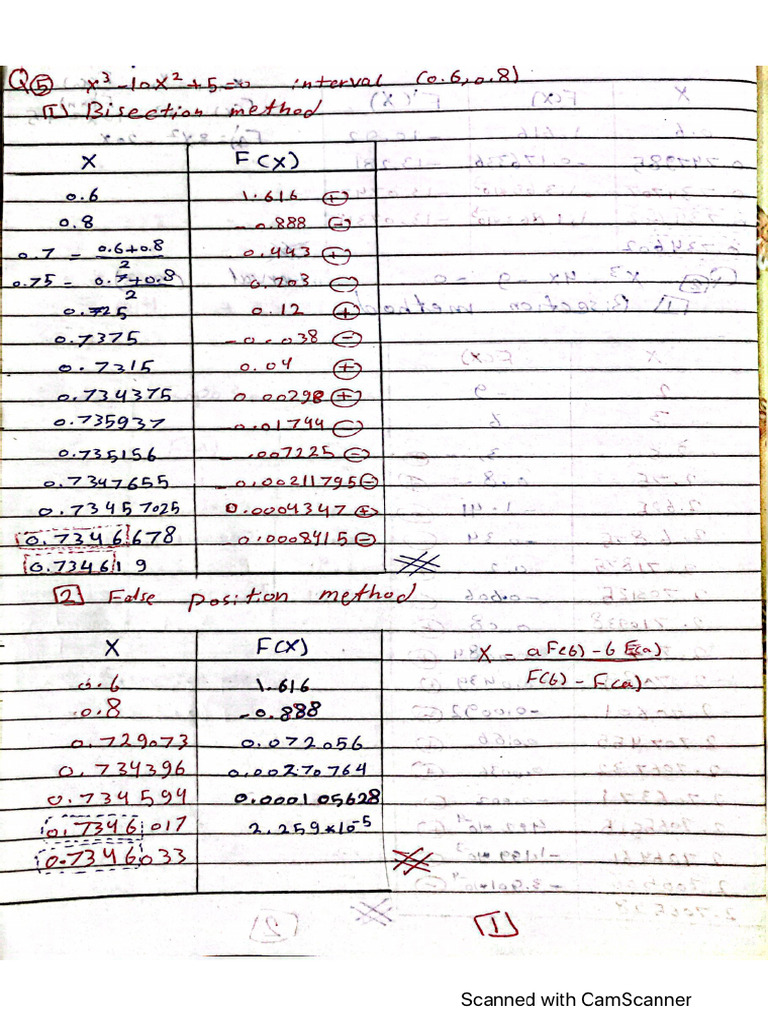 Q⑤ x³-10x²+5=0 interval (0.6,0.8)
[1] Bisection method
X F(X)
0.6 1.616 ⊕
0.8 -0.888 ⊖
0.7 = (0.6+0.8)/2 0.443 ⊕
0.75 = (0.7+0.8)/2 -0.203 ⊖
0.725 0.12 ⊕
0.7375 -0.038 ⊖
0.7315 0.04 ⊕
0.734375 0.00298 ⊕
0.735937 -0.01744 ⊖
0.735156 -.007225 ⊖
0.7347655 -0.00211795 ⊖
0.73457025 0.0004347 ⊕
0.7346678 -0.0008415 ⊖
0.734619
[2] False position method
X F(X)
0.6 1.616
0.8 -0.888
0.729073 0.072056
0.734396 0.00270764
0.734594 0.000105628
0.7346017 2.259*10⁻⁵
0.7346033
X = (aF(b)-bF(a))/(F(b)-F(a))
[1]
Scanned with CamScanner